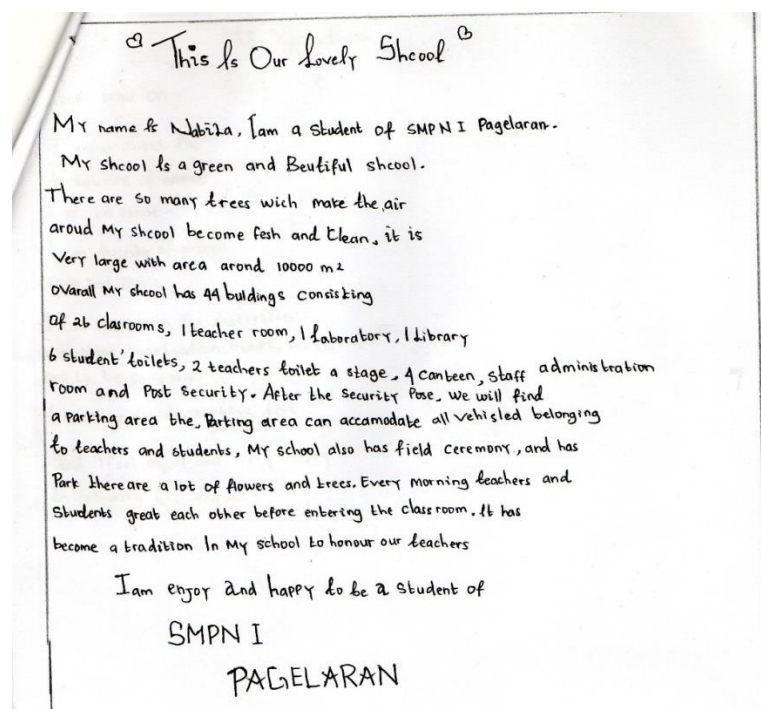 This Is Our Lovely Shcool
My name Is Nabila, I am a Student of SMP N I Pagelaran.
My shcool Is a green and Beutiful shcool.
There are so many trees wich make the air
aroud My shcool become fesh and Clean, it is
Very large with area arond 10000 m2
ovarall My shcool has 44 buldings consisting
of 26 clasrooms, 1 teacher room, 1 Laboratory, 1 Library
6 student' toilets, 2 teachers toilet a stage, 4 canteen, staff administration
room and Post Security. After the Security Pose, we will find
a Parking area the, Parking area can accamodate all vehisled belonging
to teachers and students, My school also has field ceremony, and has
Park there are a lot of flowers and trees. Every morning teachers and
Students great each other before entering the class room. It has
become a tradition In My school to honour our teachers
I am enjoy and happy to be a student of
SMPN I
PAGELARAN